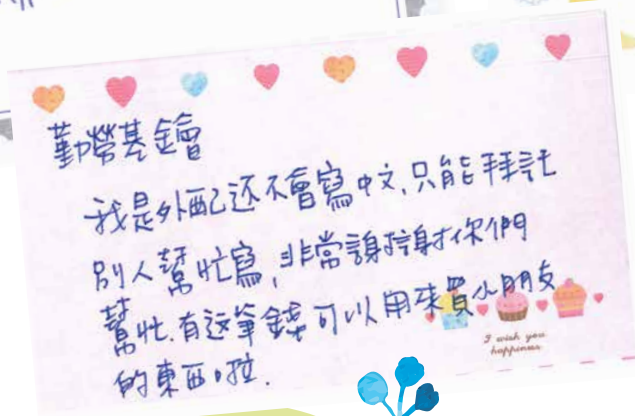 勤勞基金會
我是外配还不會寫中文,只能拜託
別人幫忙寫,非常謝謝你們
幫忙.有这筆錢可以用來買小朋友
的東西啦.
I wish you
happiness